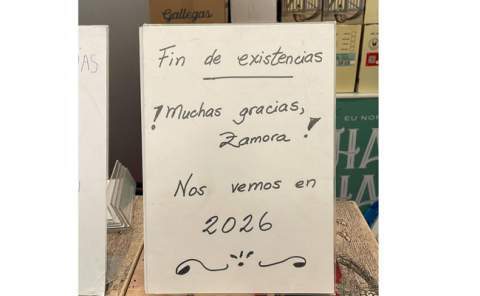 Gallegas
Fin de existencias
¡Muchas gracias,
Zamora!
Nos vemos en
2026
AS
EU NO
HA
HA